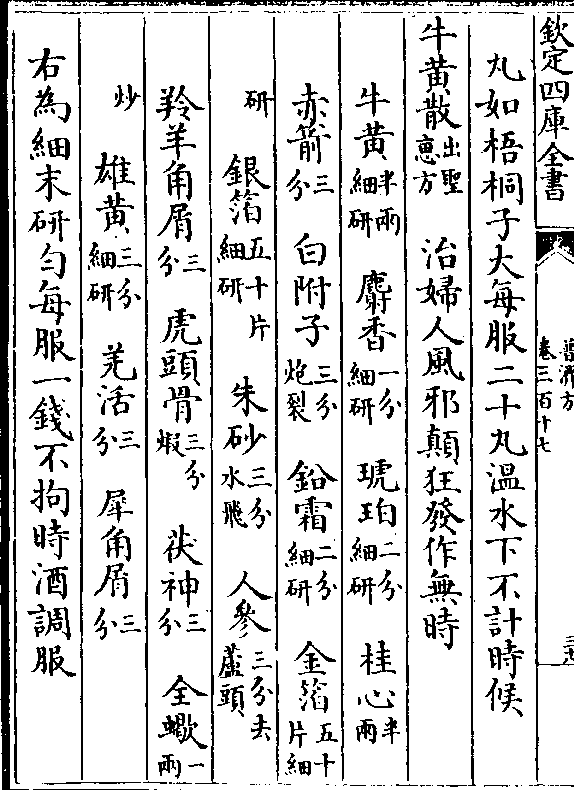 欽定四庫全書
普濟方
卷三百十七
丸如梧桐子大每服二十丸温水下不計時候
牛黄散出聖惠方 治婦人風邪顛狂發作無時
牛黄半兩細研 麝香一分細研 琥珀二分細研 桂心半兩
赤箭三分 白附子三分炮裂 鉛霜二分細研 金箔五十片細
研 銀箔五十片細研 朱砂三分水飛 人參三分去蘆頭
羚羊角屑三分 虎頭骨三分蝦 茯神三分 全蠍一兩
炒 雄黄三分細研 羌活三分 犀角屑三分
右為細末研匀每服一錢不拘時酒調服